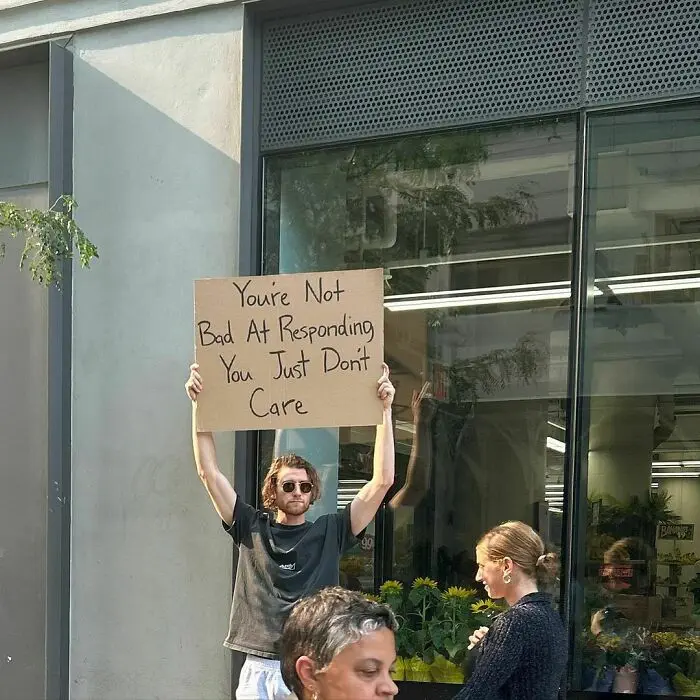 You're Not
Bad At Responding
You Just Don't
Care